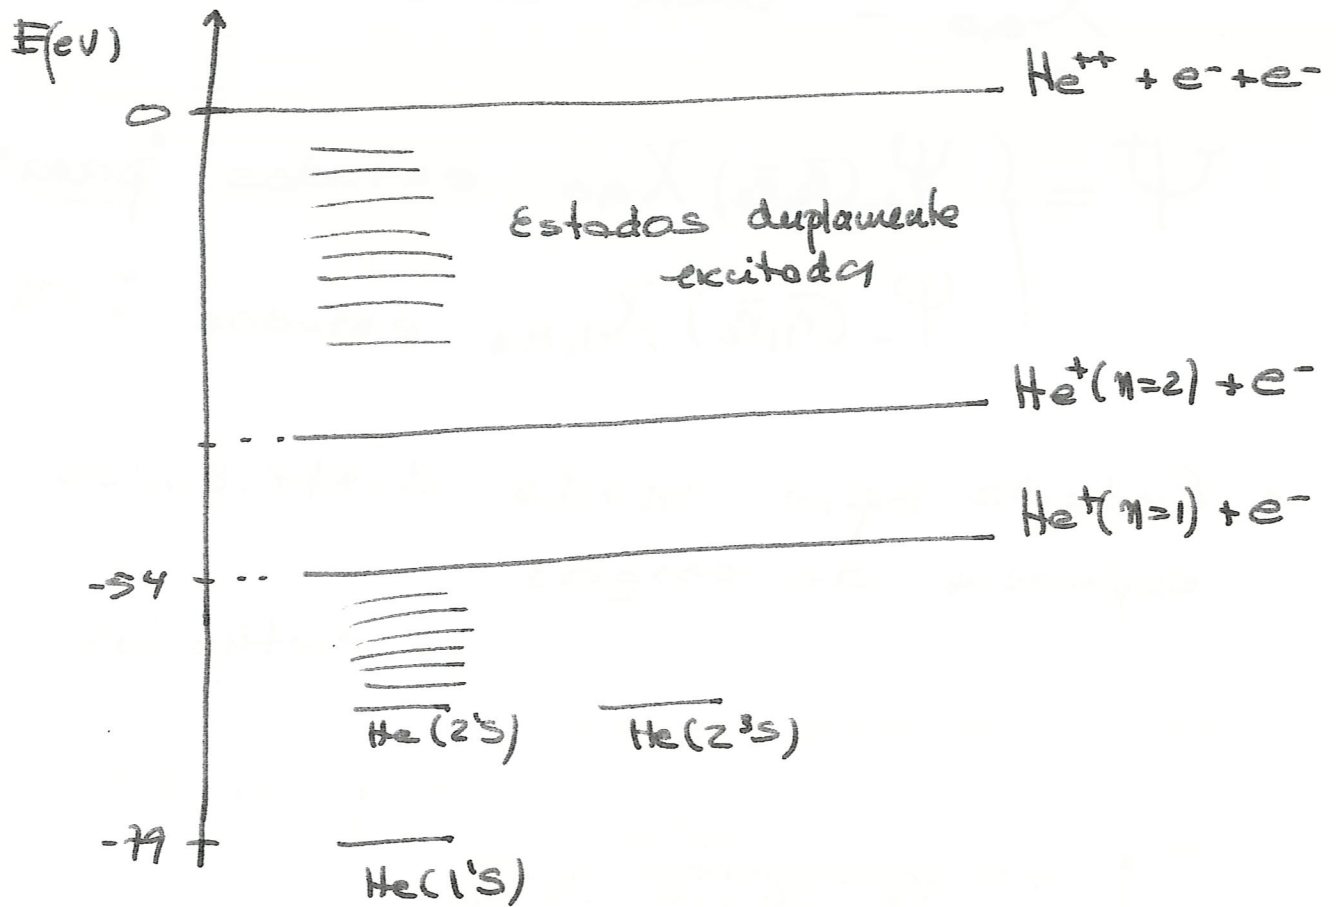 E(eV)
He⁺⁺ + e⁻ + e⁻
0
Estados duplamente
excitados
He⁺(n=2) + e⁻
He⁺(n=1) + e⁻
-54
He(2¹S) He(2³S)
-79
He(1¹S)